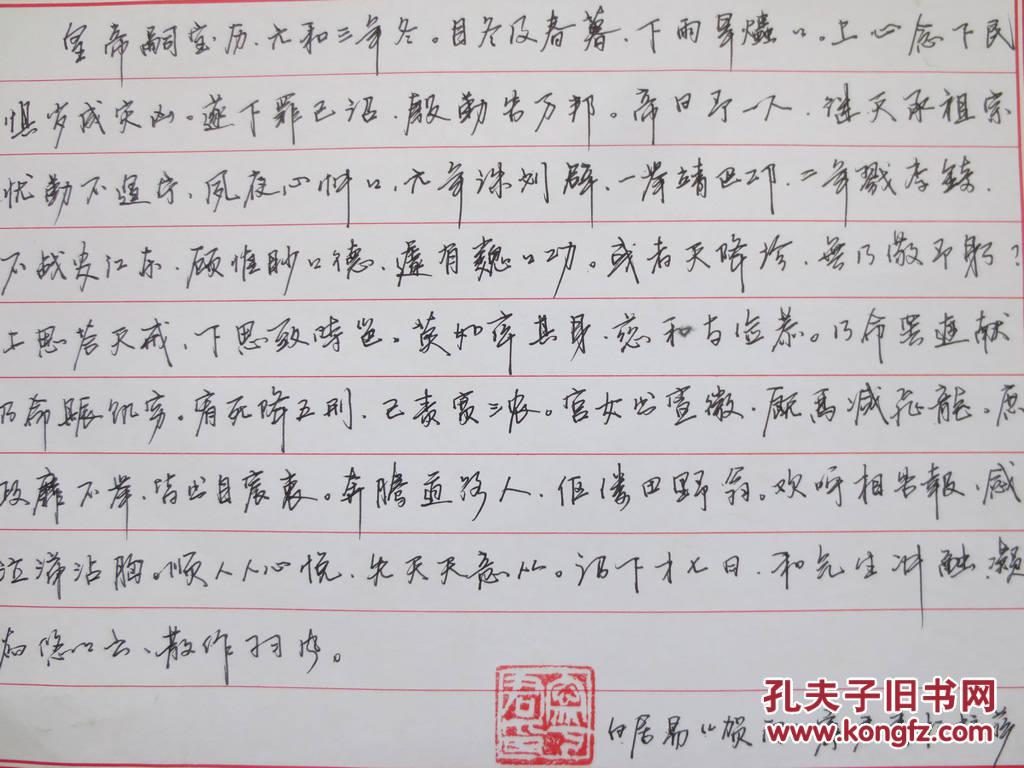 皇帝嗣宝历、元和三年冬。自冬及春暮、下雨旱爞々。上心念下民
惧岁成灾凶。遂下罪己诏、殷勤告万邦。帝曰予一人、继天承祖宗
忧勤不遑宁、夙夜心忡々、元年诛刘辟、一举靖巴邛、二年戮李锜、
不战安江东、顾惟眇々德、遽有巍々功。或者天降沴、無乃儆予躬?
上思答天戒、下思致時邕。莫如率其身、慈和与俭恭。乃命罢进献
乃命賑饥穷。宥死降五刑、己责宽三农。宫女出宣徽、厩馬减飛龍。庶
政靡不举、皆出自宸衷。奔騰道路人、伛偻田野翁。欢呼相告報、感
泣涕沾胸。顺人人心悦、先天天意从。诏下才七日、和气生冲融、凝
為悠々云、散作习々
白居易《贺雨
孔夫子旧书网
WWW.KONGFZ.COM